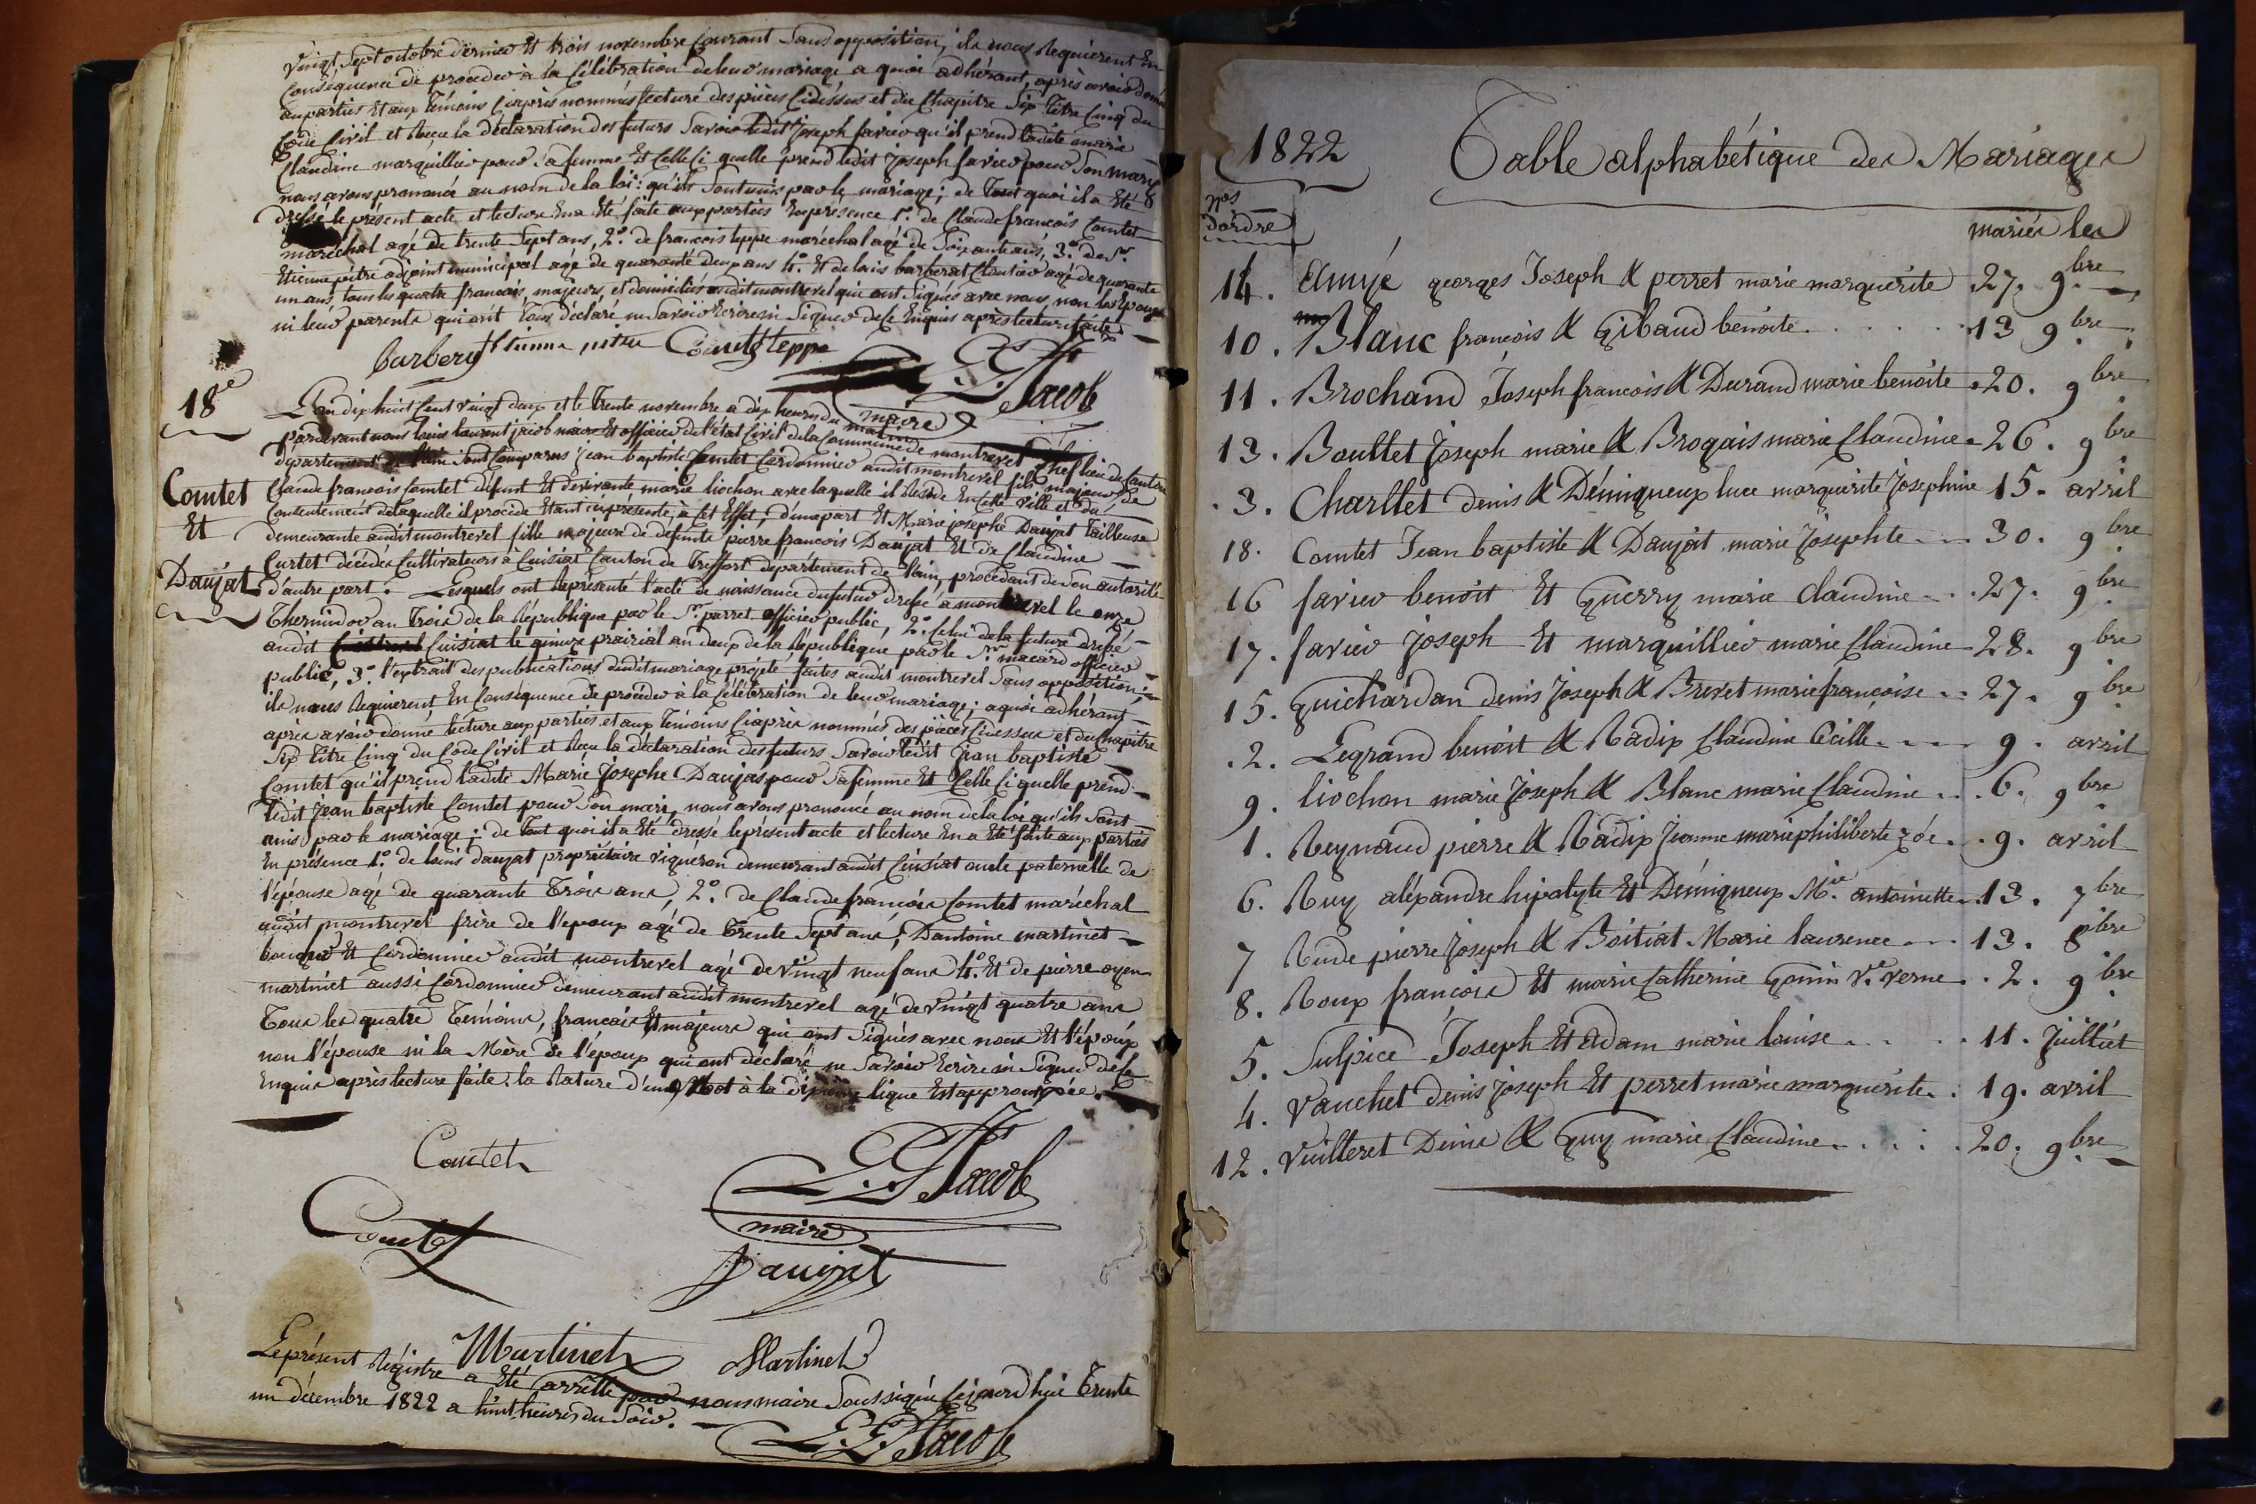 vingt Sept octobre dernier Et trois novembre Courant Sans opposition, ils nous Requierent En
Conséquence de proceder à la Célébration de leur mariage, a quoi adhérant, après avoir donné
aux parties Et aux Témoins Ciaprès nommés lecture des pièces Cidessus et du Chapitre Six Titre Cinq du
Code Civil et Reçu la déclaration des futurs Savoir ledit Joseph favier qu'il prend ladite marie
Claudine marquillier pour Sa femme Et Celle Ci quelle prend ledit Joseph favier pour Son mary
nous avons prononcé au nom de la loi : qu'ils Sont unis par le mariage ; de Tout quoi il a Eté
dressé le présent acte et lecture En a Eté faite aux parties En présence 1º. de Claude francois Comtet
maréchal agé de trente Sept ans, 2º. de francois teppe maréchal agé de Soixante ans, 3º. de Sr.
Etienne pitre adjoint municipal agé de quarante deux ans 4º. Et de louis barberat Cloutier agé de quarante
un ans, tous les quatre francais, majeurs, et domiciliés audit montrevel qui ont Signés avec nous, non les Epoux
ni leurs parents qui ont Tous déclaré ne Savoir Ecrire ni Signer de ce Enquis après lecture faite
Etienne pitre Comtet teppe
L. L. Jacob
maire
18e
Comtet
Et
Daujat
L'an dix huit Cent vingt deux et le Trente novembre a dix heures du matin
pardevant nous louis laurent jacob maire Et officier de l'état Civil de la Commune de montrevel Chef lieu de Canton
département de l'ain Sont Comparus Jean baptiste Comtet Cordonnier audit montrevel fils majeur de
Claude francois Comtet défunt Et de vivante marie liochon avec laquelle il Réside En Cette ville et du
Consentement de laquelle il procède Etant ici présente, a Cet Effet, d'une part Et Marie josephe Daujat Tailleuse
demeurante audit montrevel fille majeure de defunts pierre francois Daujat Et de Claudine
Curtet décédés Cultivateurs à Cuisiat Canton de Treffort département de l'ain, procédant de son autorité
d'autre part. Lesquels ont Représenté l'acte de naissance du futur dressé a montrevel le onze
Thermidor an Trois de la République par le Sr. perret officier public, 2º. Celui de la future dressé
audit Cuisiat le quinze prairial an deux de la République par le Sr. macard officier
public, 3º. l'extrait des publications dudit mariage projeté faites audit montrevel Sans opposition ;
ils nous Requierent En Conséquence de procéder à la Célébration de leur mariage ; a quoi adhérant
après avoir donné lecture aux parties et aux Témoins Ciaprès nommés, des pièces Cidessus et du Chapitre
Six Titre Cinq du Code Civil et Reçu la déclaration des futurs Savoir ledit Jean baptiste
Comtet qu'il prend ladite Marie Josephe Daujat pour Sa femme Et Celle Ci quelle prend
ledit Jean baptiste Comtet pour Son mari, nous avons prononcé au nom de la loi qu'ils Sont
unis par le mariage : de Tout quoi il a Eté dressé le présent acte et lecture En a Eté faite aux parties
En présence 1º. de louis daujat propriétaire vigneron demeurant audit Cuisiat oncle paternelle de
l'épouse agé de quarante Trois ans, 2º. de Claude francois Comtet maréchal
audit montrevel frère de l'epoux agé de Trente Sept ans, D'antoine martinet
Et Cordonnier audit montrevel agé de vingt neuf ans 4º. Et de pierre
martinet aussi Cordonnier demeurant audit montrevel agé de vingt quatre ans
Tous les quatre Témoins, francais Et majeurs qui ont Signés avec nous Et l'époux
non l'épouse ni la Mère de l'époux qui ont déclaré ne Savoir Ecrire ni Signer de ce
Enquis après lecture faite. la Rature d'un Mot à la dixième ligne Est approuvée.
Comtet
L. L. Jacob
maire
Comtet
Daujat
Martinet Martinet
Le présent Régistre a Eté arrêtté par nous maire Soussigné Cejourd'hui Trente
un décembre 1822 a huit heures du Soir.
L. L. Jacob
1822 Table alphabétique des Mariages
Nos d'ordre
mariés les
14. georges Joseph & perret marie marguerite 27. 9bre
10. Blanc francois & Gibaud benoite 13 9bre
11. Brochand Joseph francois & Durand marie benoite 20. 9bre
13. Bouttet Joseph marie & Brogais marie Claudine 26. 9bre
3. Charttet denis & Démiqueux luce marguerite Josephine 15. avril
18. Comtet Jean baptiste & Daujat marie Josephte 30. 9bre
16 favier benoit Et Guerry marie Claudine 27. 9bre
17. favier Joseph Et marquillier marie Claudine 28. 9bre
15. Guichardan denis Joseph & Brevet marie françoise 27. 9bre
2. Legrand benoit & Radix Claudine Cécille 9. avril
9. liochon marie Joseph & Blanc marie Claudine 6. 9bre
1. Reynaud pierre & Radix Jeanne marie philiberte zóé 9. avril
6. Ruy aléxandre hipolyte Et Démiqueux Mie. antoinette 13. 7bre
7 Rude pierre Joseph & Boitiat Marie laurence 13. 8bre
8. Roux francois Et marie Catherine Gonin Ve. verne 2. 9bre
5. Sulpice Joseph Et adam marie louise 11. Juilliet
4. Vauchet denis Joseph Et perret marie marguerite 19. avril
12. Vuilleret Denis & Guy marie Claudine 20. 9bre